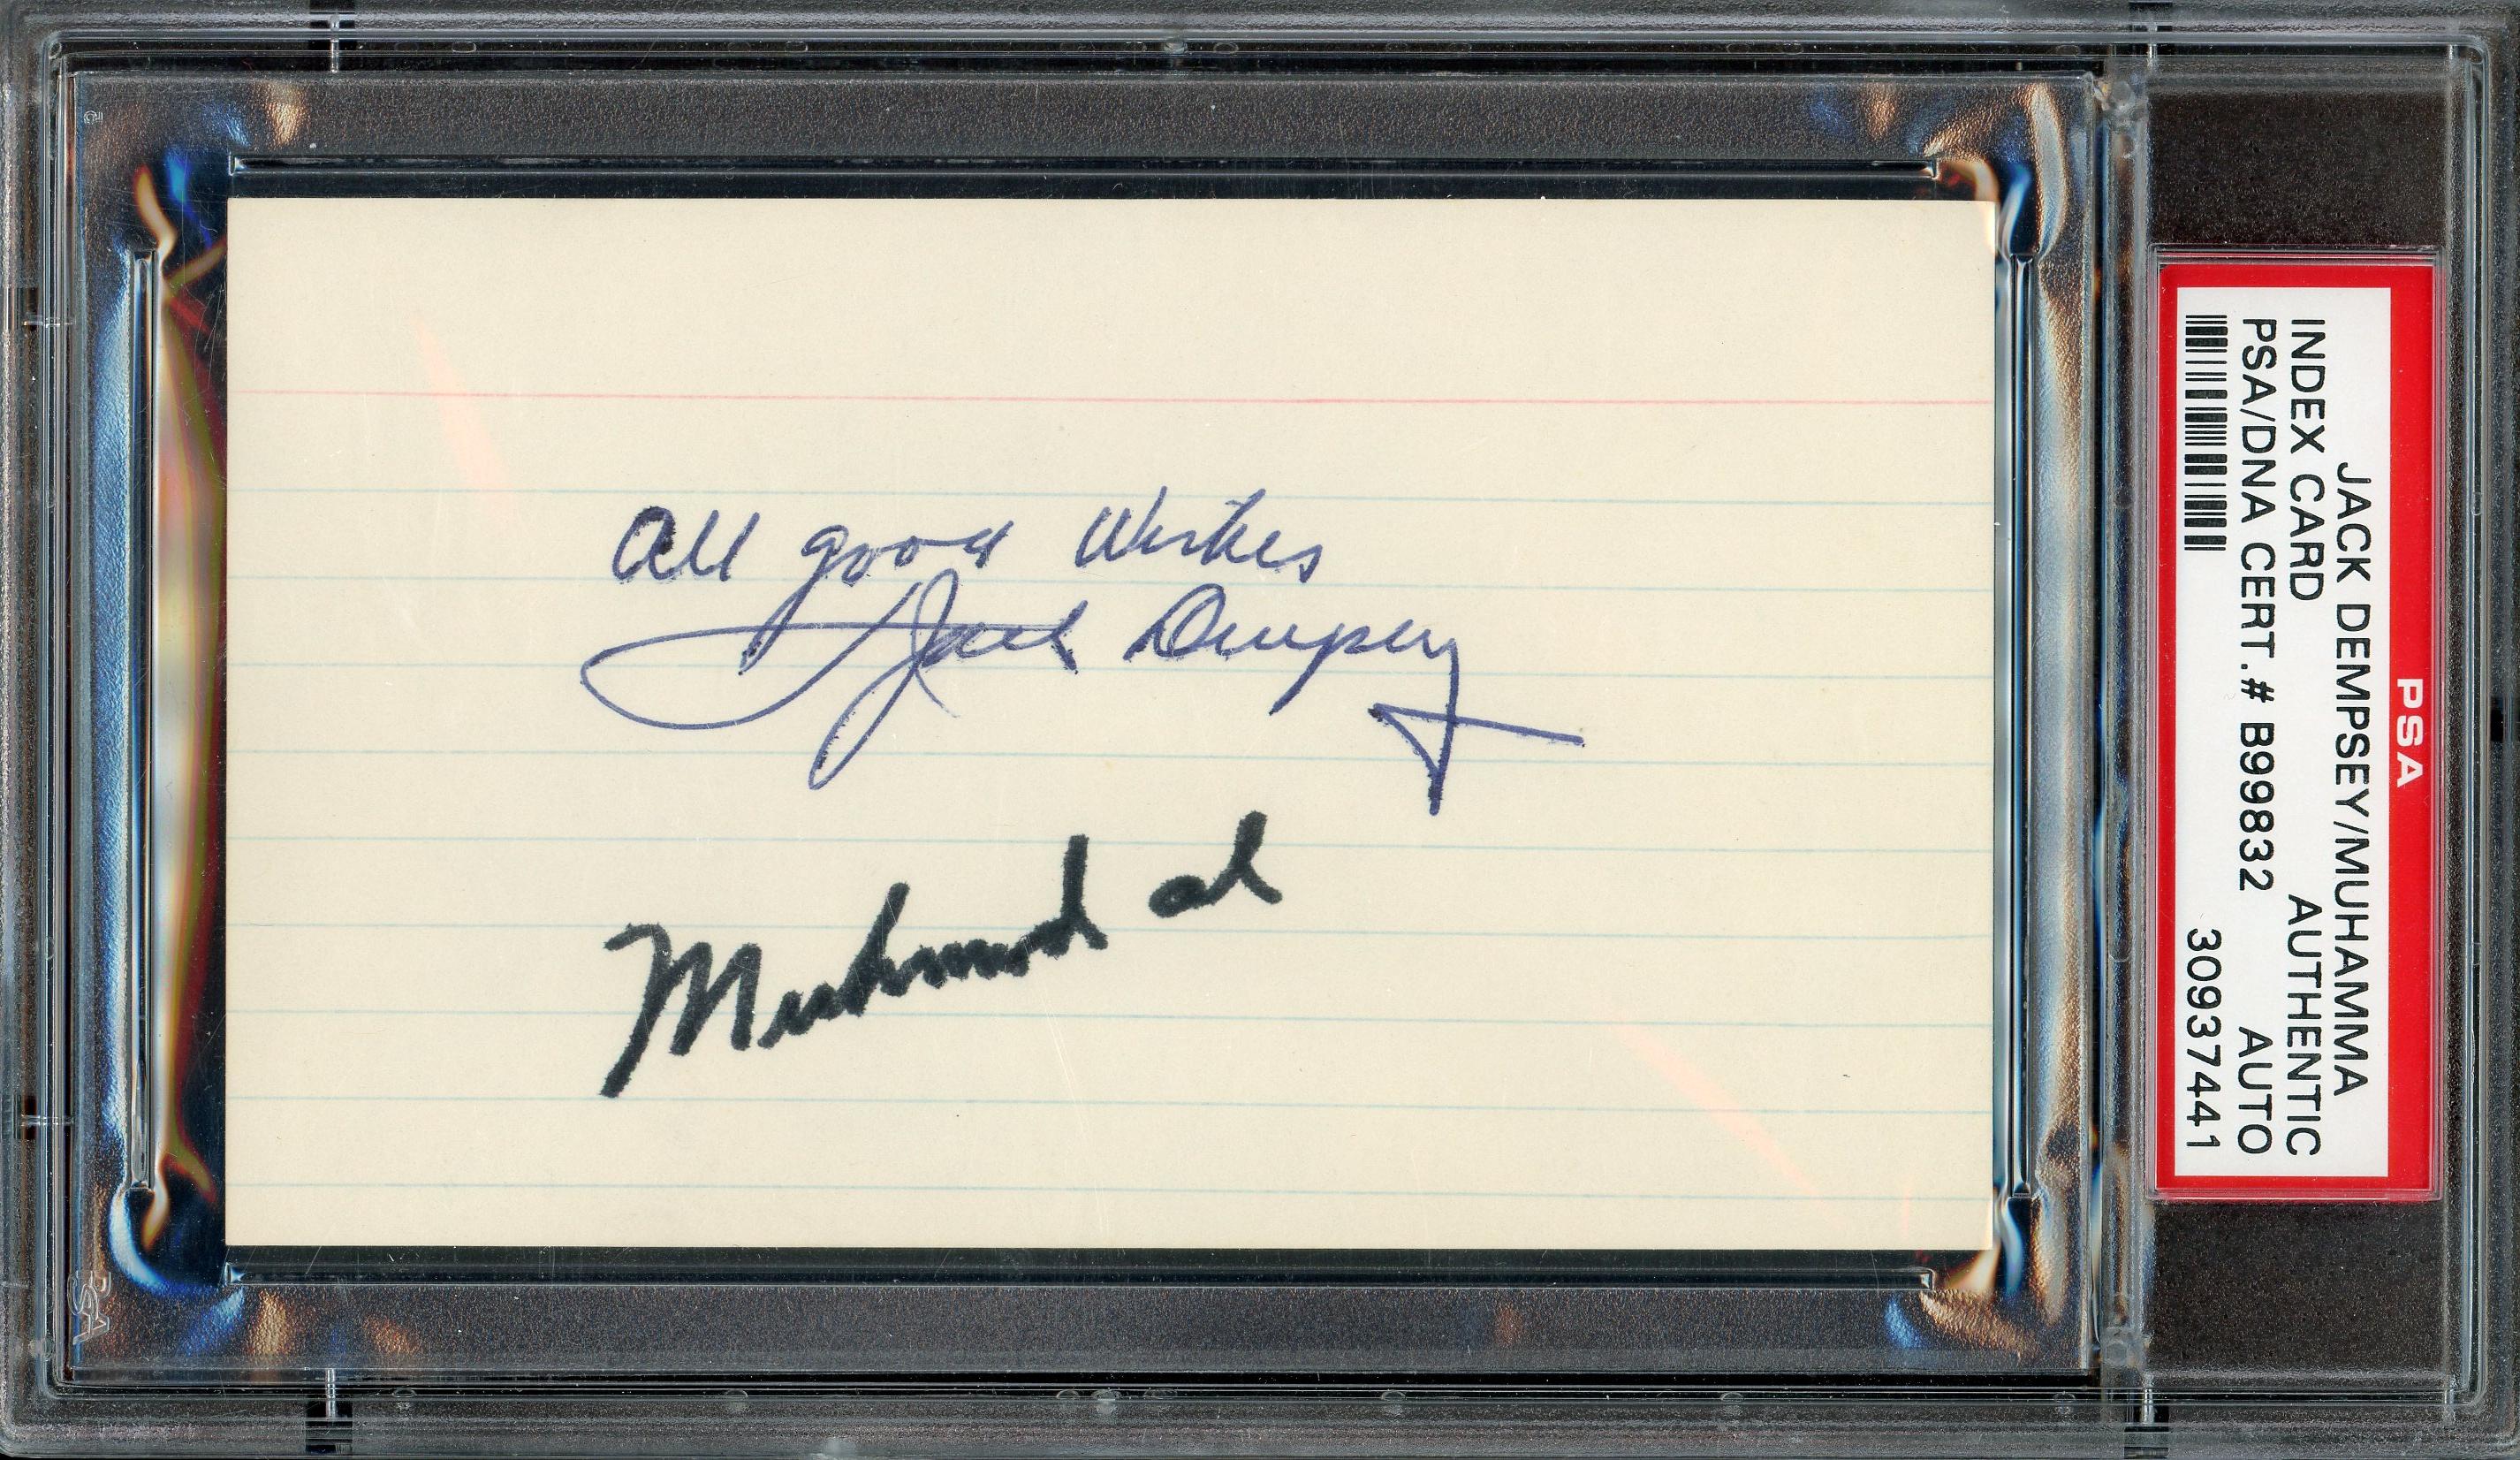 All good Wishes
Jack Dempsey
Muhammad Ali
PSA
JACK DEMPSEY/MUHAMMA
INDEX CARD AUTHENTIC
PSA/DNA CERT.# B99832 AUTO
30937441
PSA